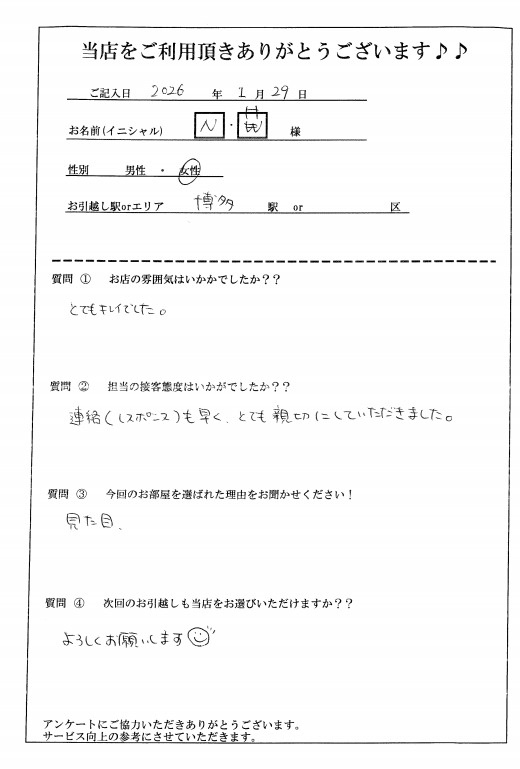 当店をご利用頂きありがとうございます♪♪
ご記入日 2026 年 1 月 29 日
お名前(イニシャル) N ・ H 様
性別 男性 ・ 女性
お引越し駅orエリア 博多 駅 or 区
質問 ① お店の雰囲気はいかかでしたか??
とてもキレイでした。
質問 ② 担当の接客態度はいかがでしたか??
連絡(レスポンス)も早く、とても親切にしていただきました。
質問 ③ 今回のお部屋を選ばれた理由をお聞かせください!
見た目、
質問 ④ 次回のお引越しも当店をお選びいただけますか??
よろしくお願いします
アンケートにご協力いただきありがとうございます。
サービス向上の参考にさせていただきます。